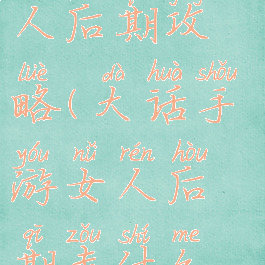 人后期攻
lüè dà huà shǒu
略(大话手
yóu nǚ rén hòu
游女人后
qī zǒu shí me
期走什么